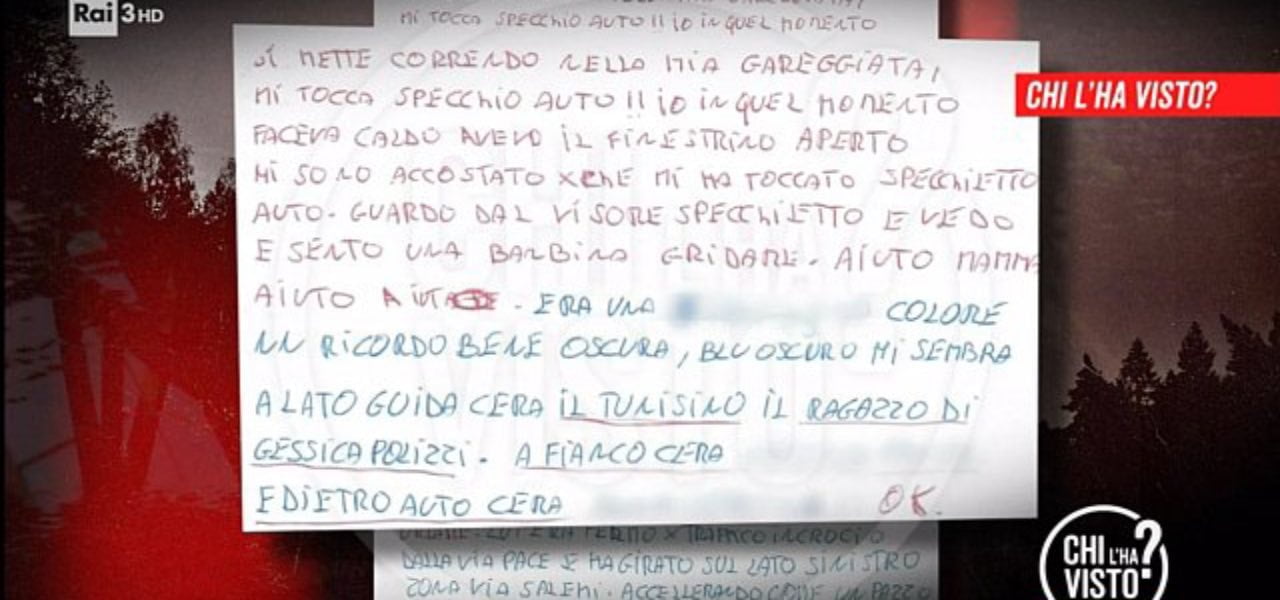 Rai 3HD
MI TOCCA SPECCHIO AUTO !! iO in QUEL MOMENTO
SI METTE CORRENDO NELLA MIA GAREGGIATA,
MI TOCCA SPECCHIO AUTO !! iO in QUEL MOMENTO
FACEVA CALDO AVEVO IL FINESTRINO APERTO
MI SONO ACCOSTATO XCHE MI HA TOCCATO SPECCHiETTO
AUTO. GUARDO DAL VISORE SPECCHiETTO E VEDO
E SENTO UNA BAMBINA GRIDARE. AIUTO MAMMA
AIUTO . ERA UNA COLORE
NN RICORDO BENE OSCURA, BLU OSCURO MI SEMBRA
A LATO GUIDA CERA IL TUNISINO IL RAGAZZO DI
GESSICA POLIZZI. A FIANCO CERA
E DIETRO AUTO CERA OK.
FERMO X TRAFFICO INCROCIO
DALLA VIA PACE E HA GIRATO SUL LATO SINISTRO
ZONA VIA SALEMI. ACCELLERANDO COME UN PAZZO
CHI L'HA VISTO?
CHI L'HA VISTO?